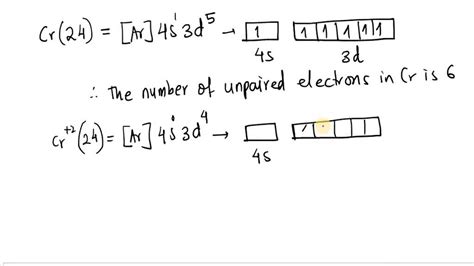 Cr(24) = [Ar] 4s¹ 3d⁵ → 1 1 1 1 1 1
4s 3d
∴ The number of unpaired electrons in Cr is 6
Cr⁺²(24) = [Ar] 4s⁰ 3d⁴ →
4s